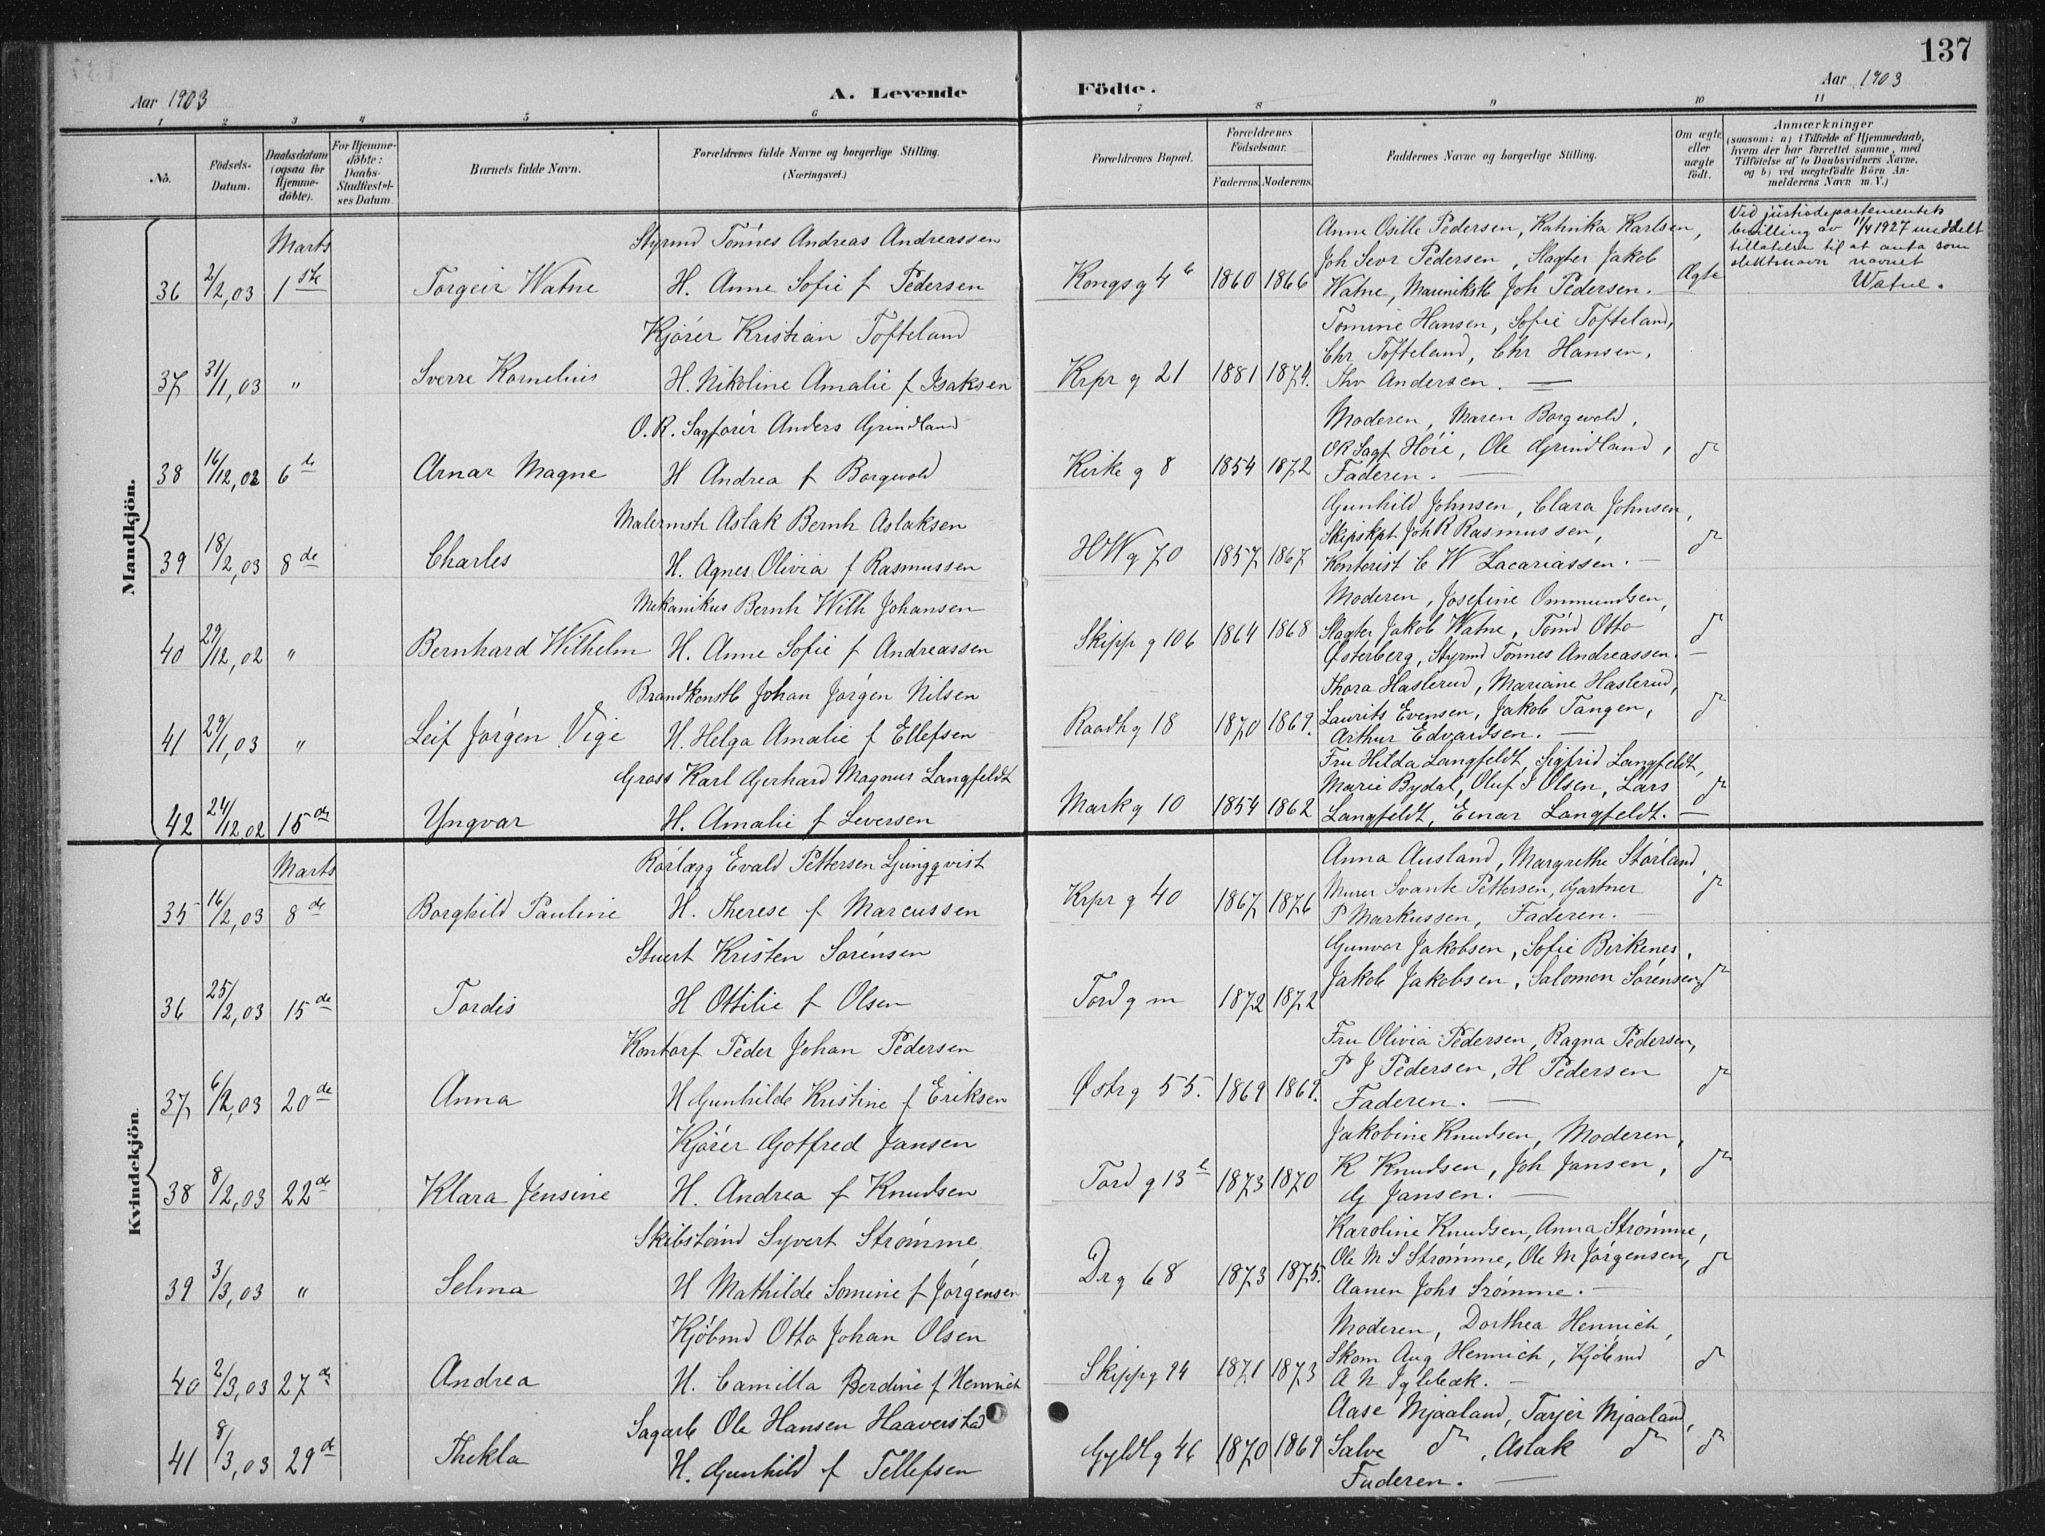 137
Aar 1903
A. Levende
Födte.
Aar 1903
1 2 3 4 5 6 7 8 9 10 11
No.
Födsels-Datum.
Daabsdatum (ogsaa for Hjemme-döbte).
For Hjemme-döbte: Daabs-Stadfæstel-ses Datum.
Barnets fulde Navn.
Forældrenes fulde Navne og borgerlige Stilling.
(Næringsvei.)
Forældrenes Bopæl.
Forældrenes Födselsaar.
Faderens. Moderens.
Faddernes Navne og borgerlige Stilling.
Om ægte eller uægte födt.
Anmærkninger
(saasom: a) i Tilfælde af Hjemmedaab, hvem der har forrettet samme, med Tilföielse af to Daabsvidners Navne, og b) ved uægtefödte Börn An-melderens Navn m. V.)
Mandkjön.
Marts
36 2/2,03 1ste Torgeir Watne
Styrmd Tönnes Andreas Andreassen
H. Anne Sofie f Pedersen
Kongsg 4b 1860 1866
Anne Osille Pedersen, Kahnka Karlsen,
Joh Sevr Pedersen, Slagter Jakob
Watne, Marinikstb Joh Pedersen. Ægte
Ved justisdepartementets
bevilling av 11/4 1927 meddelt
tillatelse til at anta som
slektsnavn navnet
Watne.
37 31/1,03 " Sverre Kornelius
Kjörer Kristian Tofteland
H. Nikoline Amalie f Isaksen
Krpr g 21 1881 1874.
Tomine Hansen, Sofie Tofteland,
Chr Tofteland, Chr Hansen,
Thv Andersen. —
38 16/12,02 6te Arnar Magne
O.R. Sagförer Anders Grindland
H Andrea f Borgevold
Kirke g 8 1854 1872
Moderen, Maren Borgevold,
OR Sagf Höie, Ole Grindland,
Faderen. — do
39 18/2,03 8de Charles
Malermstr Aslak Bernh Aslaksen
H. Agnes Olivia f Rasmussen
HWg 70 1857 1867
Gunhild Johnsen, Clara Johnsen,
Skipskpt Joh R Rasmussen,
Kontorist C W Zacariassen. — do
40 29/12,02 " Bernhard Wilhelm
Mekanikus Bernh Wilh Johansen
H. Anne Sofie f Andreassen
Skipp g 106 1864 1868
Moderen, Josefine Ommundsen,
Slagter Jakob Watne, Tömd Otto
Østerberg, Styrmd Tönnes Andreassen. — do
41 29/1,03 " Leif Jörgen Vige
Brandkonstb Johan Jörgen Nilsen
H. Helga Amalie f Ellefsen
Raadhg 18 1870 1869.
Thora Haslerud, Mariane Haslerud,
Laurits Evensen, Jakob Tangen,
Arthur Edvardsen. — do
42 24/12,02 15de Yngvar
Gross Karl Gerhard Magnus Langfeldt
H. Amalie f Seversen
Markg 10 1854 1862
Fru Hilda Langfeldt, Sigfrid Langfeldt,
Marie Bydal, Oluf S Olsen, Lars
Langfeldt, Einar Langfeldt. — do
Kvindekjön.
Marts
35 16/2,03 8de Borghild Pauline
Rörlægg Evald Pettersen Ljungqvist
H. Therese f Marcussen
Krpr g 40 1867 1876
Anna Ausland, Margrethe Störland,
Murer Svante Pettersen, Gartner
P Markussen, Faderen. — do
36 25/2,03 15de Tordis
Stuert Kristen Sörensen
H Ottilie f Olsen
Tord g m 1872 1872
Gunvor Jakobsen, Sofie Birkenes,
Jakob Jakobsen, Salomon Sörensen do
37 6/2,03 20de Anna
Kontorf Peder Johan Pedersen
H Gunhilde Kristine f Eriksen
Østrg 55. 1869 1869.
Fru Olivia Pedersen, Ragna Pedersen,
P J Pedersen, H Pedersen
Faderen. — do
38 8/2,03 22de Klara Jensine
Kjörer Gotfred Jansen
H. Andrea f Knudsen
Tord g 13b 1873 1870
Jakobine Knudsen, Moderen,
K Knudsen, Joh Jansen,
G Jansen. — do
39 3/3,03 " Selma
Skibstömd Syvert Strömme
H Mathilde Somine f Jörgensen
Drg 68 1873 1875.
Karoline Knudsen, Anna Strömme,
Ole M S Strömme, Ole M Jörgensen,
Aanen Johs Srömme. — do
40 2/3,03 27de Andrea
Kjöbmd Otto Johan Olsen
H. Camilla Berdine f Hennich
Skippg 94 1871 1873
Moderen, Dorthea Hennich,
Skom Aug Hennich, Kjöbmd
A N Iglebæk. — do
41 8/3,03 29de Thekla
Sagarb Ole Hansen Haaverstad
H. Gunhild f Tellefsen
Gyldlg 46 1870 1869
Aase Mjaaland, Tarjer Mjaaland,
Salve do, Aslak do do
Faderen. —